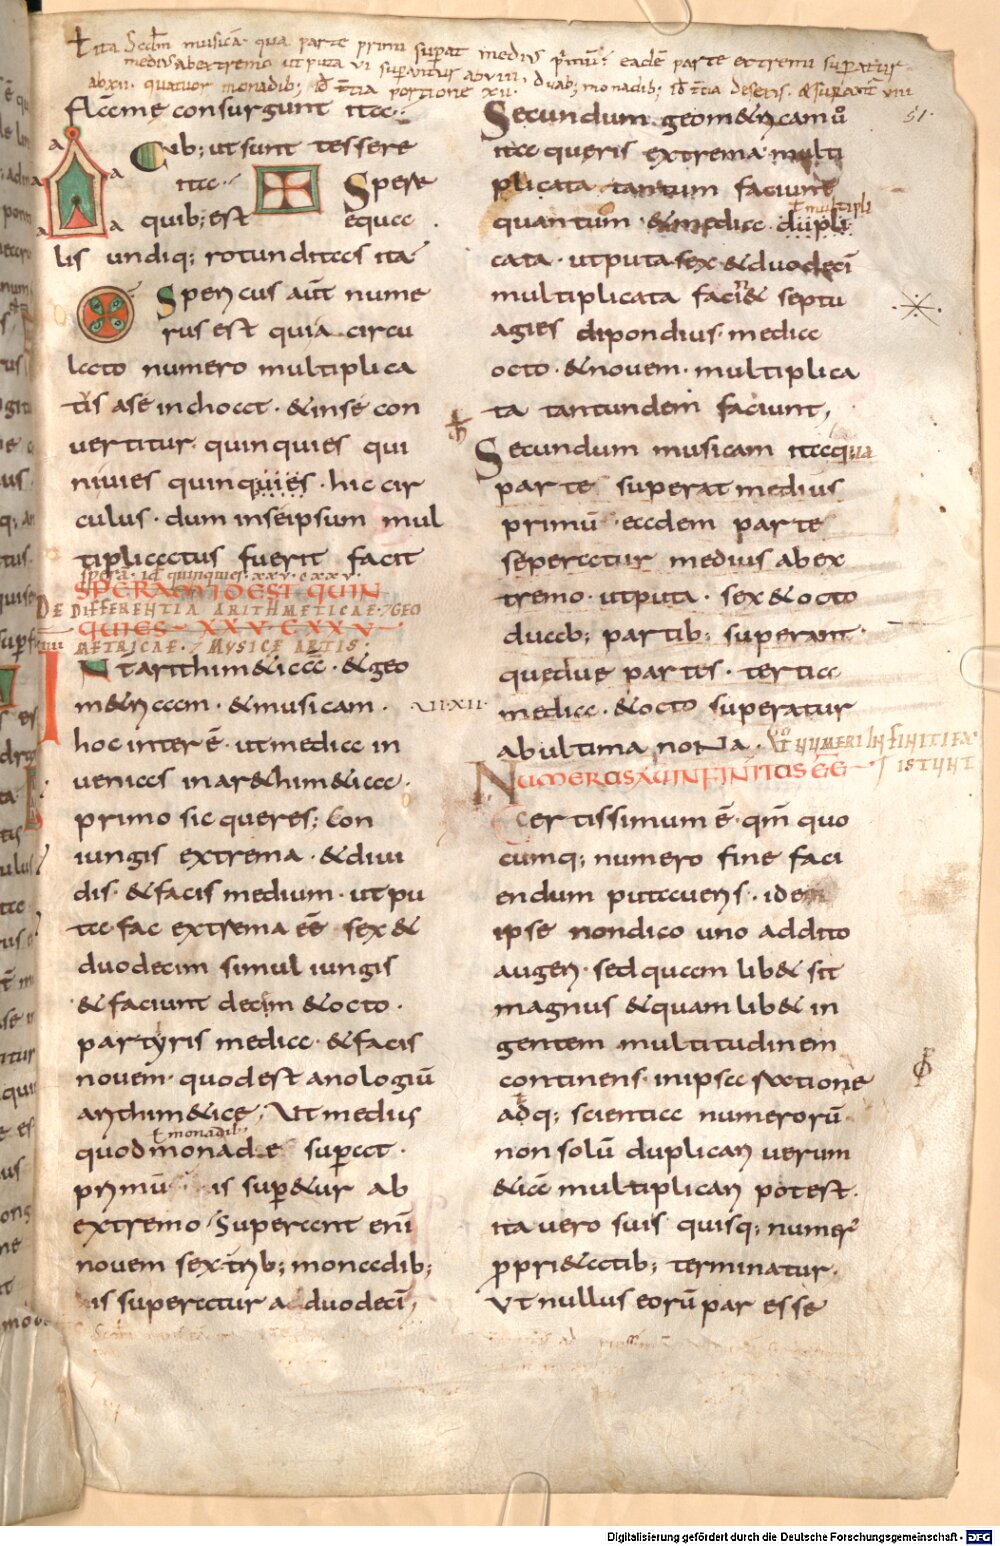 ita Scdm musicā qua parte primū supat medius primū eadē parte extremū superatur
medius ab extremo ut puta VI superantur ab VIII duab; monadib; id tertia
ab XII quatuor monadib; id tertia portione XII
51
flamme consurgunt ita
Cub; ut sunt tessere
ita
Spere
quib; est equa
lis undiq; rotunditas ita
Spericus aūt nume
rus est quia circu
lato numero multiplica
tis a se inchoat · & in se con
vertitur quinquies qui
nivies quinquiies · hic cir
culus · dum in seipsum mul
tiplicatus fuerit facit
spera · id quinquies · xxv · cxxv ·
SPERAM IDEST QUIN
DE DIFFERENTIA ARITHMETICAE · 7 GEO
QUIES XXV CXXV
METRICAE · 7 MUSICE ARTIS
INtarithim&ica · & geo
m&ricam · & musicam ·
hoc inter ē · ut media in
venias in ar&him&ica ·
primo sic queres; Con
iungis extrema · & divi
dis · & facis medium · ut pu
ta fac extrema eē sex &
duodecim simul iungis
& faciunt decim & octo ·
partyris media · & facis
novem · quod est anologiū
arithim&ice; Ut medius
monadib
quod monade supat ·
primū is sup&ur ab
extremo · Superant enī
novem sex trib; monadib;
is superatur a duodecī;
Secundum geom&ricam ů
ita queris extrema multi
plicata tantum faciunt
multipli
quantum · & media dupli
cata · ut puta sex & duodecī
multiplicata faci& septu
agies dipondius · media
octo · & novem · multiplica
ta tantundem faciunt,
Secundum musicam ita qua
parte superat medius
primū · eadem parte
seperatur medius ab ex
tremo · ut puta · sex & octo
duab; partib; superant
quedue partes · tertia
VII XII
media · & octo superatur
ab ultima nona ·
NUMERI INFINITI EX
NUMEROS AŪ INFINITOS EE
ISTUNT
Certissimum ē · qm̄ quo
cumq; numero fine faci
endum putaveris · idem
ipse non dico uno addito
augeri · sed quam lib& sit
magnus & quam lib& in
gentem multitudinem
continens · in ipsa ratione
adq; scientia numerorū
non solū duplicari verum
&iā multiplicari potest ·
ita vero suis quisq; numer
propri&atib; terminatur ·
Ut nullus eorū par esse
Digitalisierung gefördert durch die Deutsche Forschungsgemeinschaft - DFG